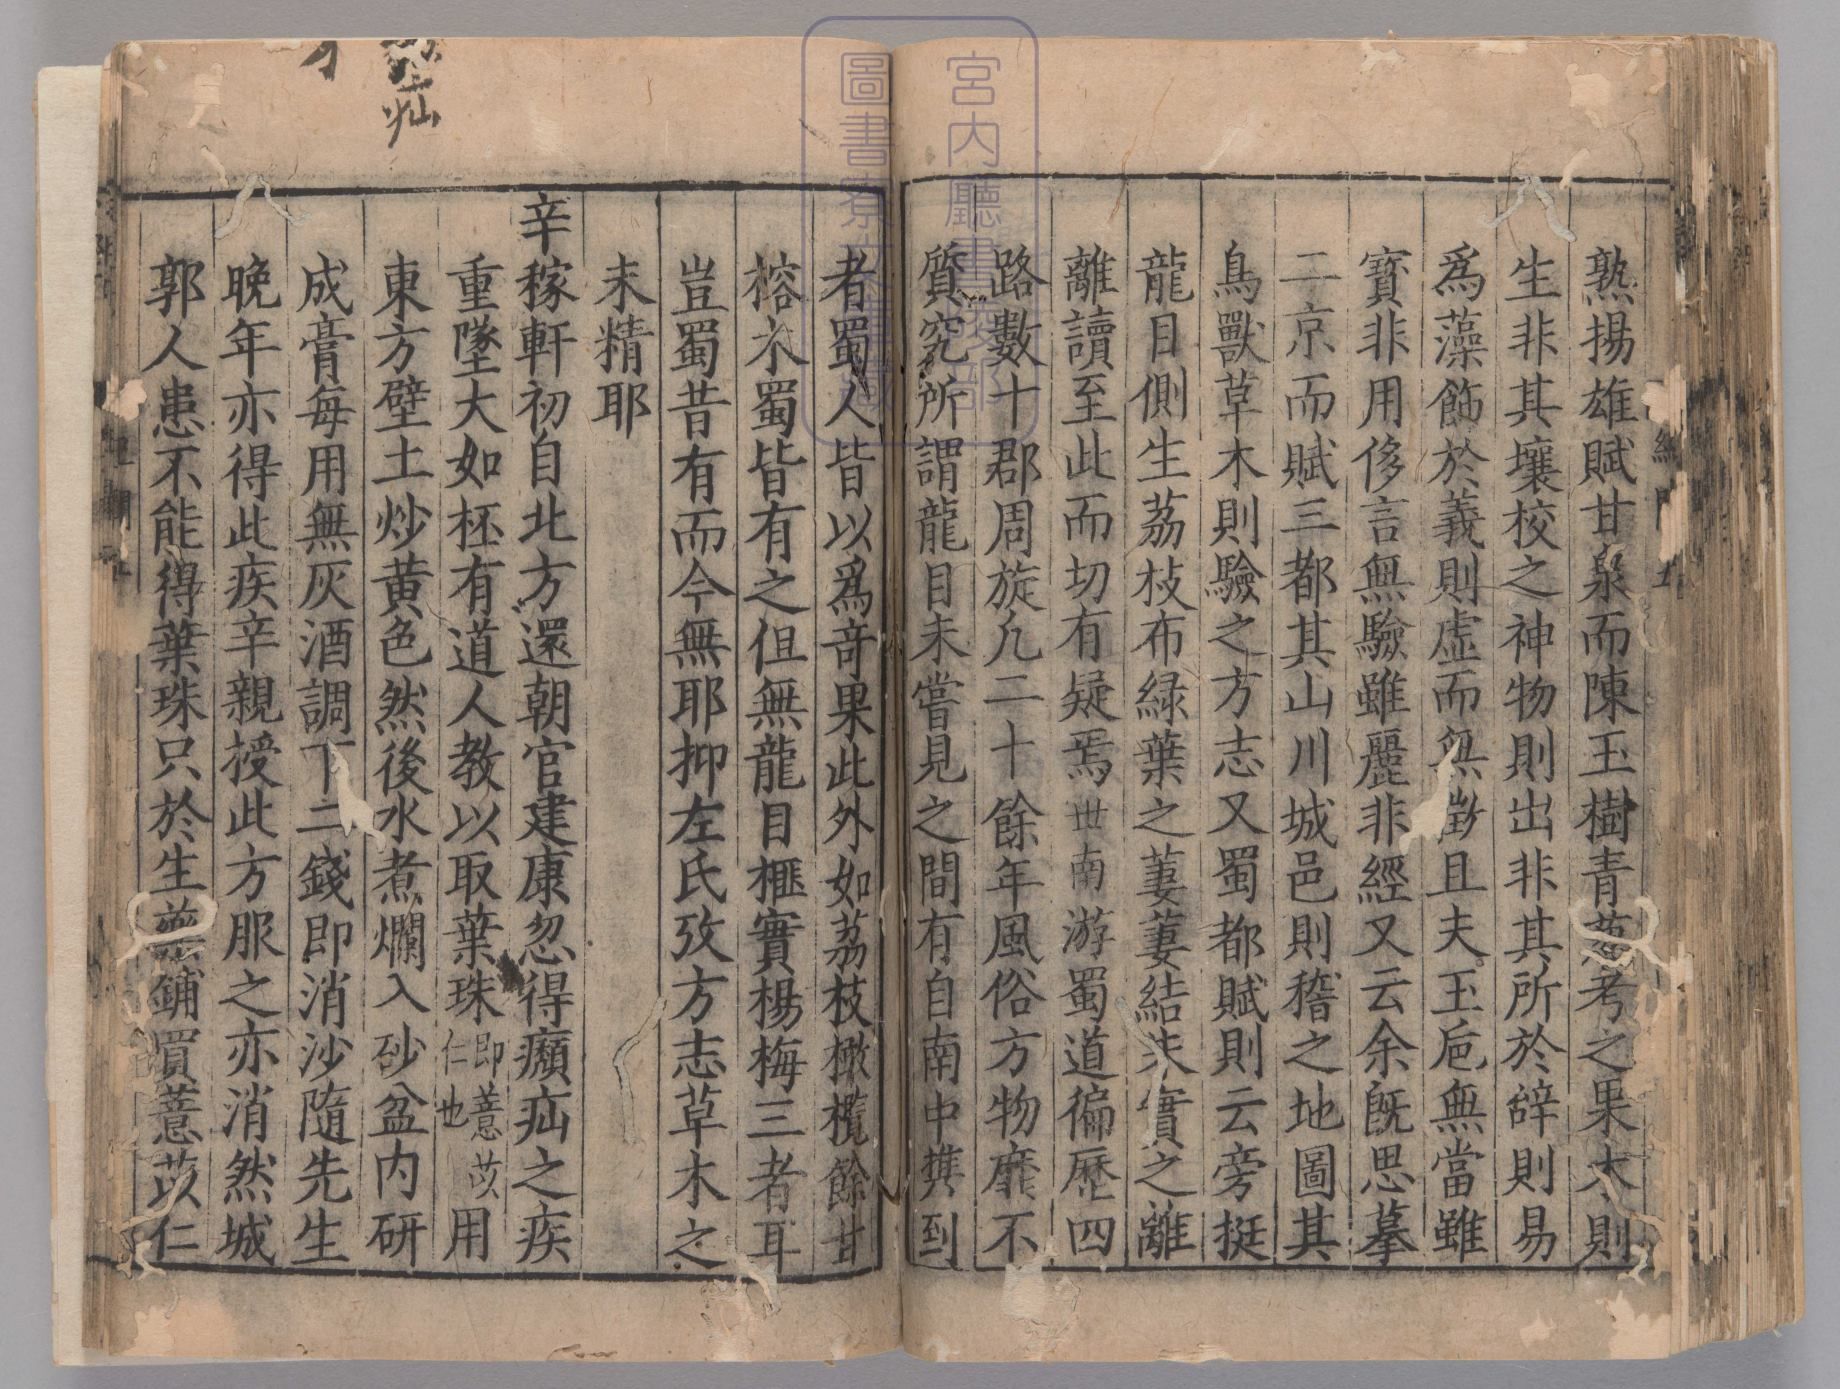 熟揚雄賦甘泉而陳玉樹青葱考之果木則
生非其壤校之神物則出非其所於辝則易
爲藻飾於義則虛而無徵且夫玉巵無當雖
寳非用侈言無驗雖麗非經又云余旣思摹
二京而賦三都其山川城邑則稽之地圖其
鳥獸草木則驗之方志又蜀都賦則云旁挺
龍目側生荔枝布綠葉之萋萋結朱實之離
離讀至此而切有疑焉世南游蜀道徧歷四
路數十郡周旋凢二十餘年風俗方物靡不
質究所謂龍目未嘗見之間有自南中携到
者蜀人皆以爲奇果此外如荔枝橄欖餘甘
榕木蜀皆有之但無龍目榧實楊梅三者耳
豈蜀昔有而今無耶抑左氏攷方志草木之
未精耶
辛稼軒初自北方還朝官建康忽得㿗疝之疾
重墜大如柸有道人教以取葉珠即薏苡仁也用
東方壁土炒黄色然後水煮爛入砂盆内研
成膏每用無灰酒調下二錢即消沙隨先生
晚年亦得此疾辛親授此方服之亦消然城
郭人患不能得葉珠只於生藥鋪買薏苡仁
疝
宮内廳書陵部
圖書寮文庫